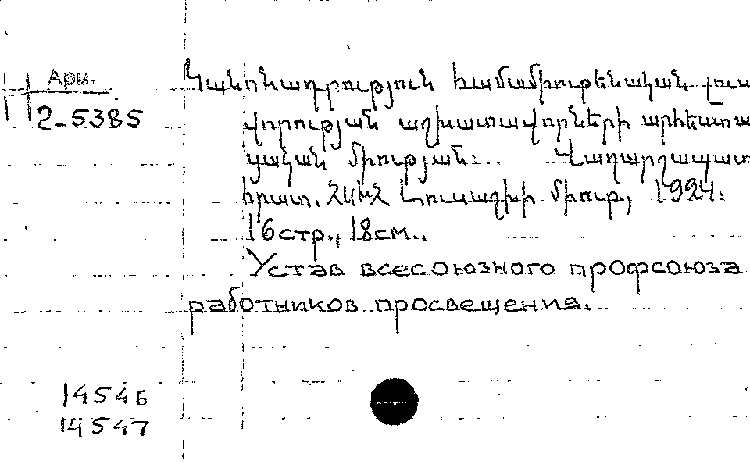 Арм.
2-5385
Կանոնադրություն համամիութենական լուս
վորության աշխատավորների արհեստա
կցական միության:.. Վաղարշապատ
հրատ. միութ., 1924.
16стр., 18см..
Устав всесоюзного профсоюза
работников просвещения.
14546
14547